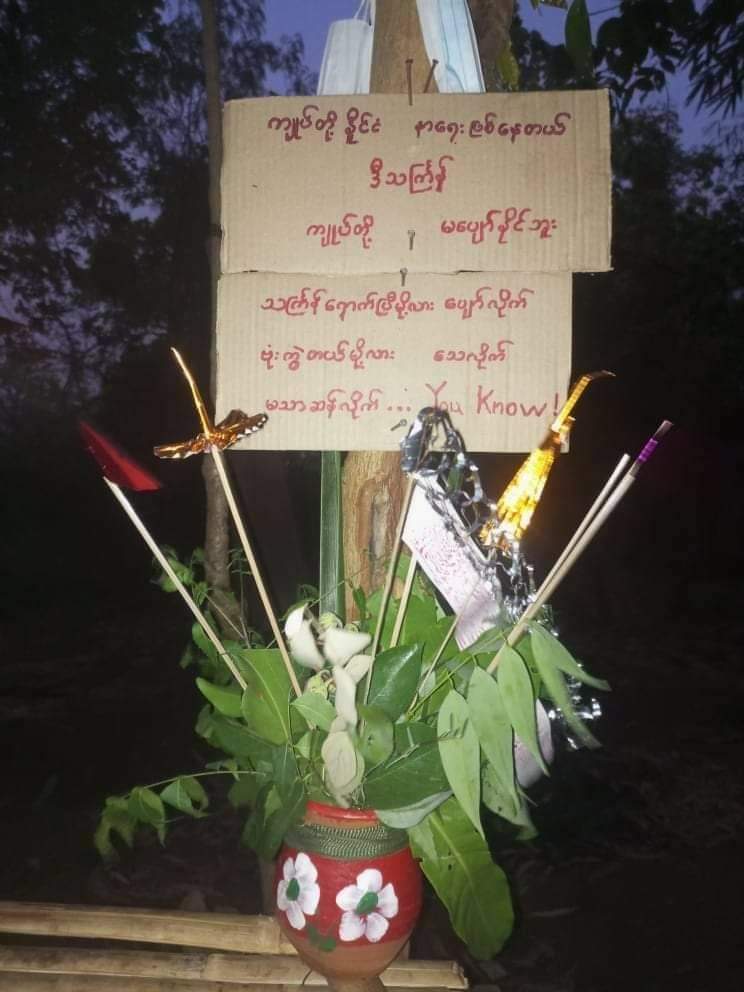 ကျုပ်တို့ နိူင်ငံ နာရေးဖြစ်နေတယ်
ဒီသင်္ကြန်
ကျုပ်တို့ မပျော်နိုင်ဘူး
သင်္ကြန်ရောက်ပြီမို့လား ပျော်လိုက်
ဗုံးကွဲတယ်မို့လား သေလိုက်
မသာဆန်လိုက် ... You Know!